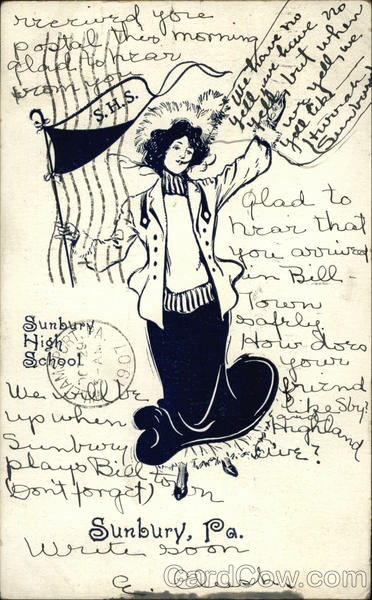 received your
postal this morning
glad to hear
from you
We have no
yell, we have no
yell, but when
we yell, we
yell like
Hurrah
Sunbury
S.H.S.
Glad to
hear that
you arrived
in Bill-
Town
safely.
How does
your
friend
like Sby?
Highland
Give?
Sunbury
High
School
1907
We will be
up when
Sunbury
plays Bill to
Don't forget) wn
Sunbury, Pa.
Write soon
CardCow.com